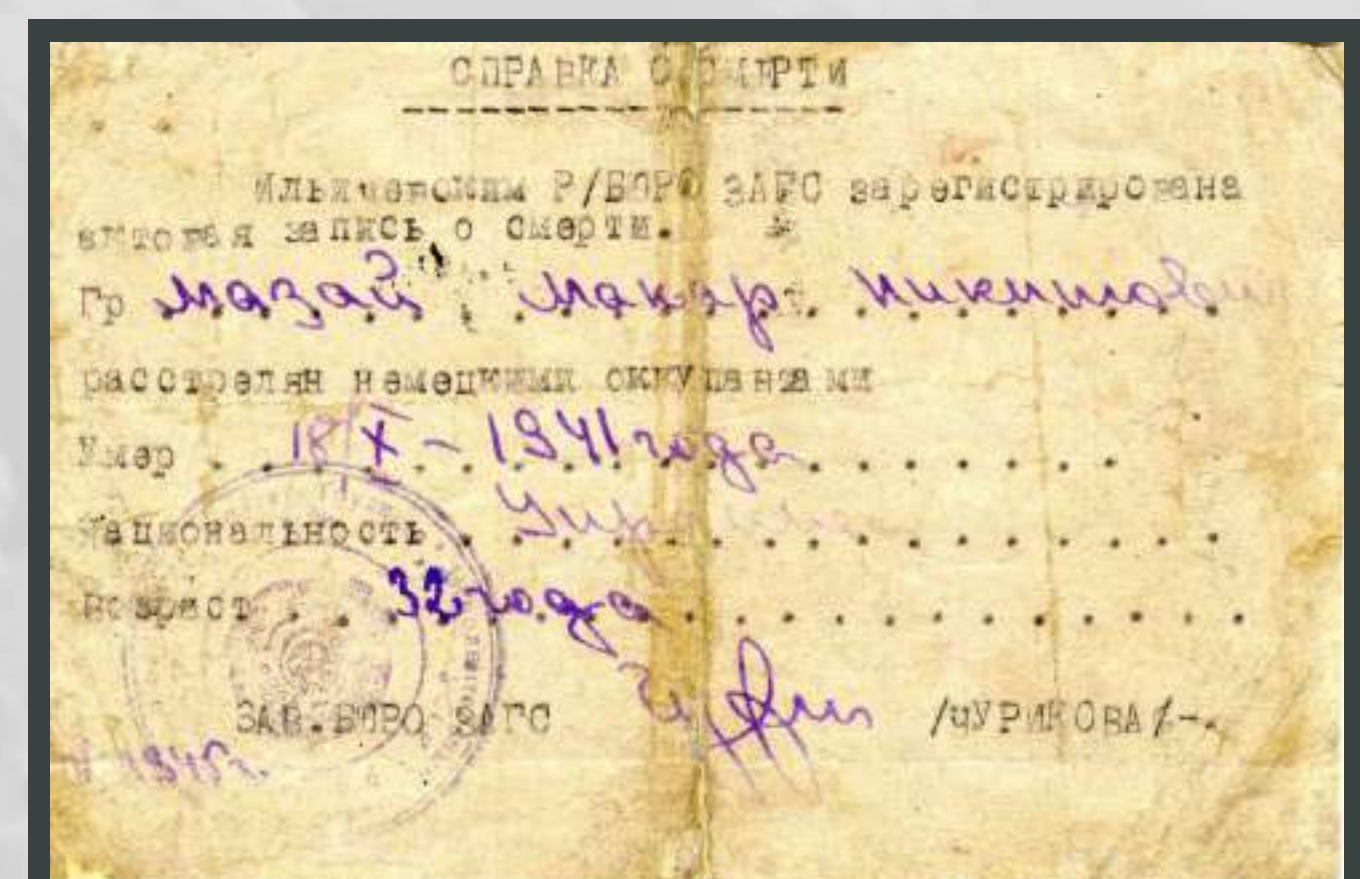 СПРАВКА О СМЕРТИ
Ильичевским Р/БЮРО ЗАГС зарегистрирована
актовая запись о смерти.
Гр Мазай Макар Никитович
расстрелян немецкими оккупантами
Умер 18/X - 1941 года
Национальность
Возраст 32 года
ЗАВ.БЮРО ЗАГС /ЧУРИКОВА/-
1945г.